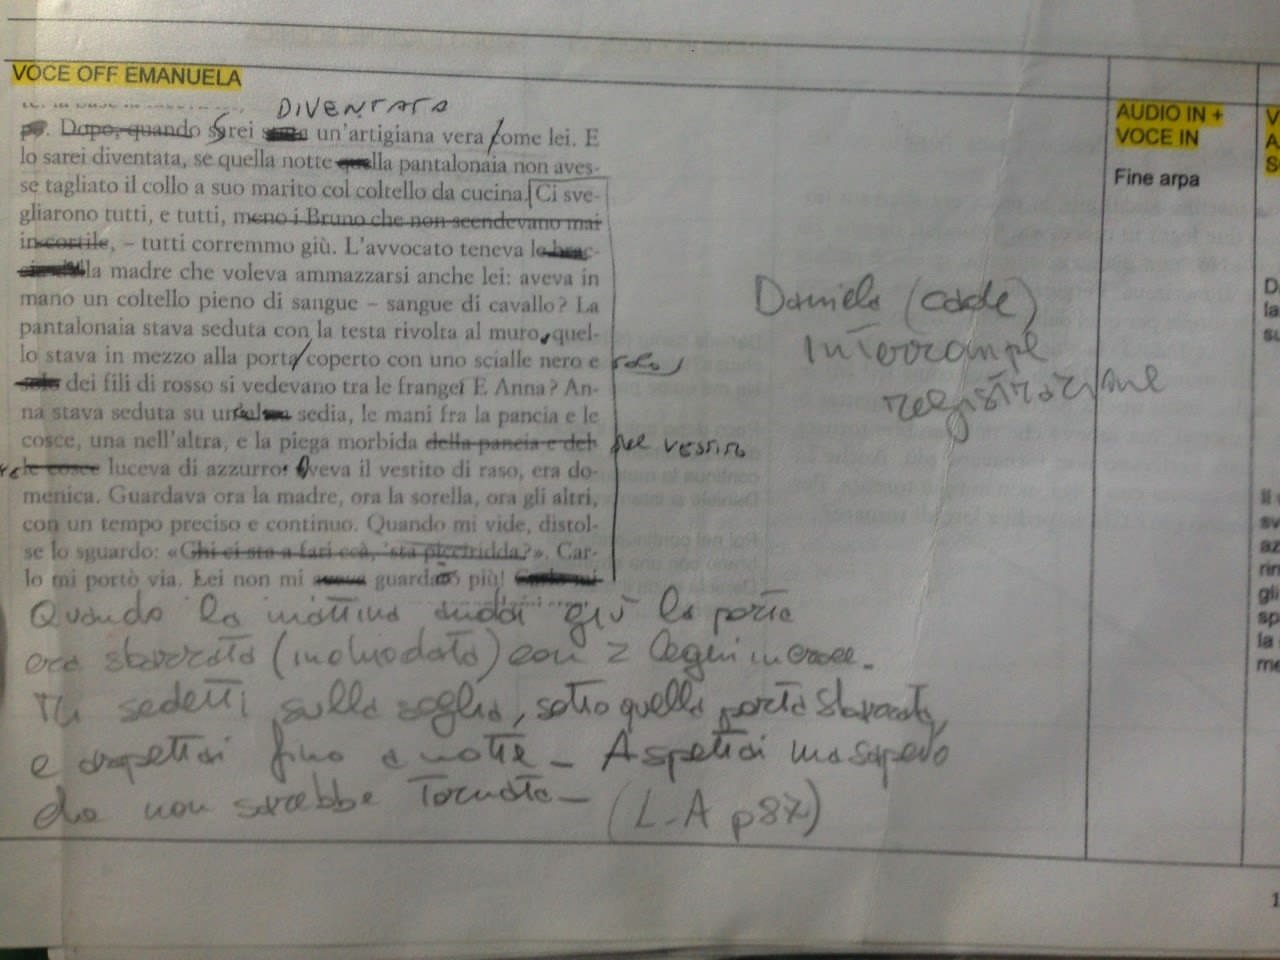 VOCE OFF EMANUELA
DIVENTATA
po. Dopo, quando sarei un'artigiana vera come lei. E
lo sarei diventata, se quella notte quella pantalonaia non aves-
se tagliato il collo a suo marito col coltello da cucina. Ci sve-
gliarono tutti, e tutti, meno i Bruno che non scendevano mai
in cortile, – tutti corremmo giù. L'avvocato teneva le brac-
la madre che voleva ammazzarsi anche lei: aveva in
mano un coltello pieno di sangue – sangue di cavallo? La
pantalonaia stava seduta con la testa rivolta al muro, quel-
lo stava in mezzo alla porta coperto con uno scialle nero e solo
solo dei fili di rosso si vedevano tra le frange. E Anna? An-
na stava seduta su sedia, le mani fra la pancia e le
cosce, una nell'altra, e la piega morbida della pancia e del- del vestito
le cosce luceva di azzurro. Aveva il vestito di raso, era do-
menica. Guardava ora la madre, ora la sorella, ora gli altri,
con un tempo preciso e continuo. Quando mi vide, distol-
se lo sguardo: «Chi ci sta a fari ccà, 'sta picciridda?». Car-
lo mi portò via. Lei non mi guardò più! Carlo mi
Quando la mattina andai giù la porta
era sbarrata (inchiodata) con 2 legni in croce_
Mi sedetti sulla soglia, sotto quella porta sbarrata,
e aspettai fino a notte_ Aspettai ma sapevo
che non sarebbe tornata_ (L.A p87)
Daniela (cade)
interrompe
registrazione
AUDIO IN +
VOCE IN
Fine arpa